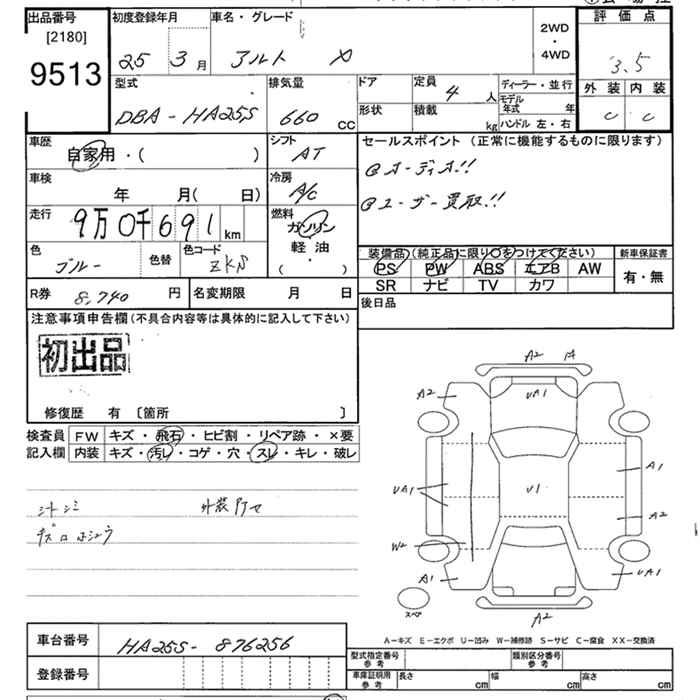 出品番号
[2180]
9513
初度登録年月
25 3月
車名・グレード
アルト
2WD
・
4WD
評価点
3.5
外装 内装
C C
型式
DBA-HA25S
排気量
660 CC
ドア
形状
定員
4 人
積載
kg
ディーラー・並行
モデル年式 年
ハンドル 左・右
車歴
自家用・( )
シフト
AT
セールスポイント(正常に機能するものに限ります)
オーディオ!!
ユーザー買取!!
車検
年 月( 日)
冷房
A/C
走行
9万0千691 km
燃料
ガソリン
軽・油
( ・ )
色
ブルー
色替
色コード
ZKN
装備品(純正品に限り〇をつけてください)
新車保証書
PS PW ABS エアB AW
SR ナビ TV カワ
有・無
R券 8,740 円
名変期限 月 日
後日品
注意事項申告欄(不具合内容等は具体的に記入して下さい)
初出品
修復歴 有 〔箇所 〕
検査員
記入欄
FW キズ・飛石・ヒビ割・リペア跡・×要
内装 キズ・汚レ・コゲ・穴・スレ・キレ・破レ
シートシミ
外装
A2
A2
UA1
UA1
U1
A1
A2
W2
A1
UA1
A2
スペア
A-キズ E-エクボ U-凹み W-補修跡 S-サビ C-腐食 XX-交換済
車台番号
HA25S-876256
登録番号
型式指定番号
参考
類別区分番号
参考
車庫証明用
参考
長さ cm
幅 cm
高さ cm